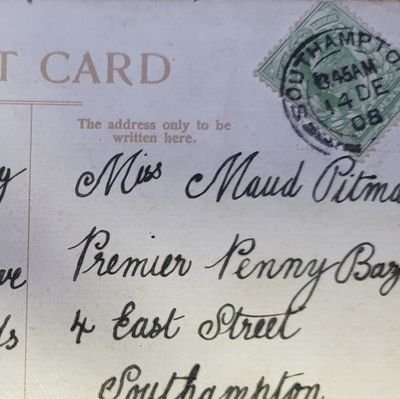 T CARD
SOUTHAMPTO
8.45AM
14 DE
08
The address only to be
written here.
Miss Maud Pitma
Premier Penny Baz
4 East Street
Southampton